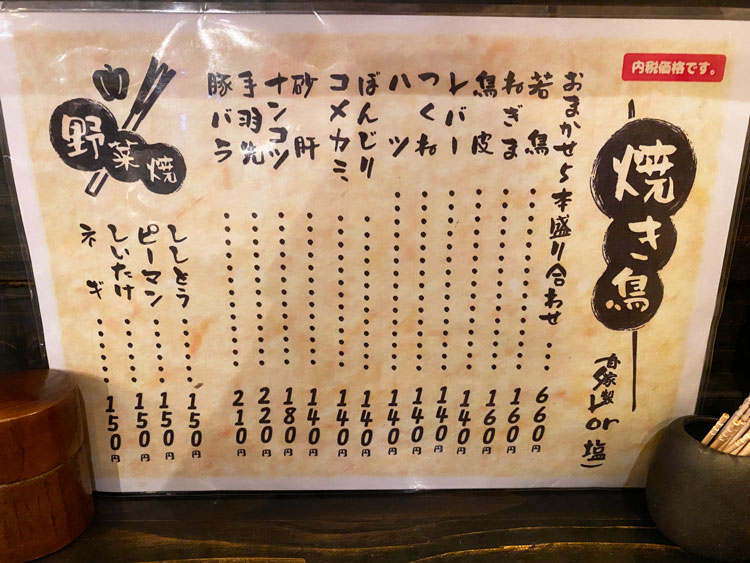 内税価格です。
焼き鳥
(自家製タレor塩)
おまかせ5本盛り合わせ 660円
若鳥 160円
ねぎま 160円
鳥皮 140円
レバー 140円
つくね 140円
ハツ 140円
ぼんじり 140円
コメカミ 140円
砂肝 140円
ナンコツ 180円
手羽先 220円
豚バラ 210円
野菜焼
ししとう 150円
ピーマン 150円
しいたけ 150円
ネギ 150円